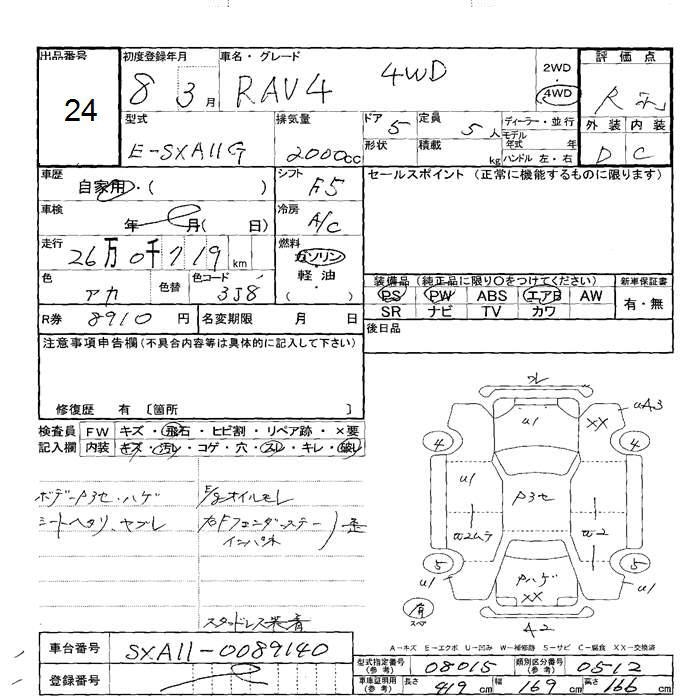 出品番号 初度登録年月 車名・グレード 評価点
24 8 3月 RAV4 4WD 2WD・4WD R
型式 排気量 ドア 5 定員 5人 ディーラー・並行 外装 内装
E-SXA11G 2000cc 形状 積載 kg モデル年式 年 ハンドル 左・右 D C
車歴 自家用・( ) シフト F5 セールスポイント (正常に機能するものに限ります)
車検 年 月( 日) 冷房 A/C
走行 26万0千719km 燃料 ガソリン 軽油 ( )
色 アカ 色替 色コード 3J8 装備品 (純正品に限り○をつけてください) 新車保証書
PS PW ABS エアB AW 有・無
SR ナビ TV カワ
R券 8910円 名変期限 月 日 後日品
注意事項申告欄(不具合内容等は具体的に記入して下さい)
修復歴 有 〔箇所 〕
検査員 FW キズ・飛石・ヒビ割・リペア跡・×要
記入欄 内装 キズ・汚レ・コゲ・穴・スレ・キレ・破レ
ボデーP3セ・ハゲ E/gオイルモレ
シートヘタリ、ヤブレ 右Fフェンダーステー 歪
インパネ
スタッドレス装着
U1 XX UA3
4 4
U1 P3セ
U2ムラ U2
5 5
U1 Pハゲ XX U1
有 スペア A2
A-キズ E-エクボ U-凹み W-補修跡 S-サビ C-腐食 XX-交換済
車台番号 SXA11-0089140 型式指定番号(参考) 08015 類別区分番号(参考) 0512
登録番号 車庫証明用(参考) 長さ 419cm 幅 169cm 高さ 166cm